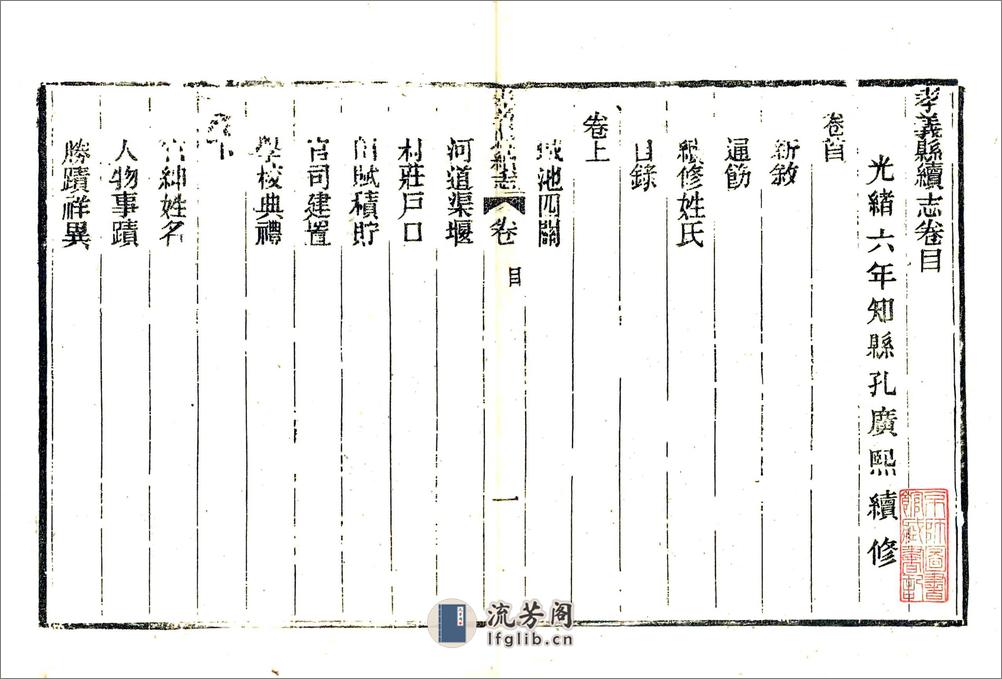 孝義縣續志卷目
光緒六年知縣孔廣熙續修
卷首
新敘
通飭
續修姓氏
目錄
卷上
城池四關
孝義縣續志 卷目 一
河道渠堰
村莊戶口
田賦積貯
官司建置
學校典禮
卷下
官紳姓名
人物事蹟
勝蹟祥異
京師圖書
館藏書記
流芳阁
lfglib.cn